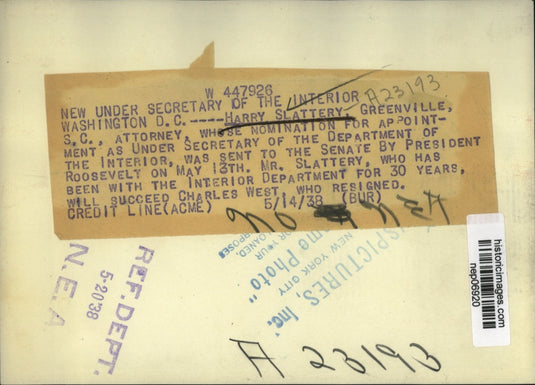 W 447926
NEW UNDER SECRETARY OF THE INTERIOR
WASHINGTON D.C. -----HARRY SLATTERY, GREENVILLE,
S.C., ATTORNEY, WHOSE NOMINATION FOR APPOINT-
MENT AS UNDER SECRETARY OF THE DEPARTMENT OF
THE INTERIOR, WAS SENT TO THE SENATE BY PRESIDENT
ROOSEVELT ON MAY 13TH. MR. SLATTERY, WHO HAS
BEEN WITH THE INTERIOR DEPARTMENT FOR 30 YEARS,
WILL SUCCEED CHARLES WEST, WHO RESIGNED.
CREDIT LINE(ACME) 5/14/38 (BUR)
A 23193
NO
NEA
PICTURES, Inc.
NEW YORK CITY
me Photo"
OR YOUR
LOANED
REF. DEPT.
5-2038
N.E.A.
A 23193
historicimages.com
nep06920